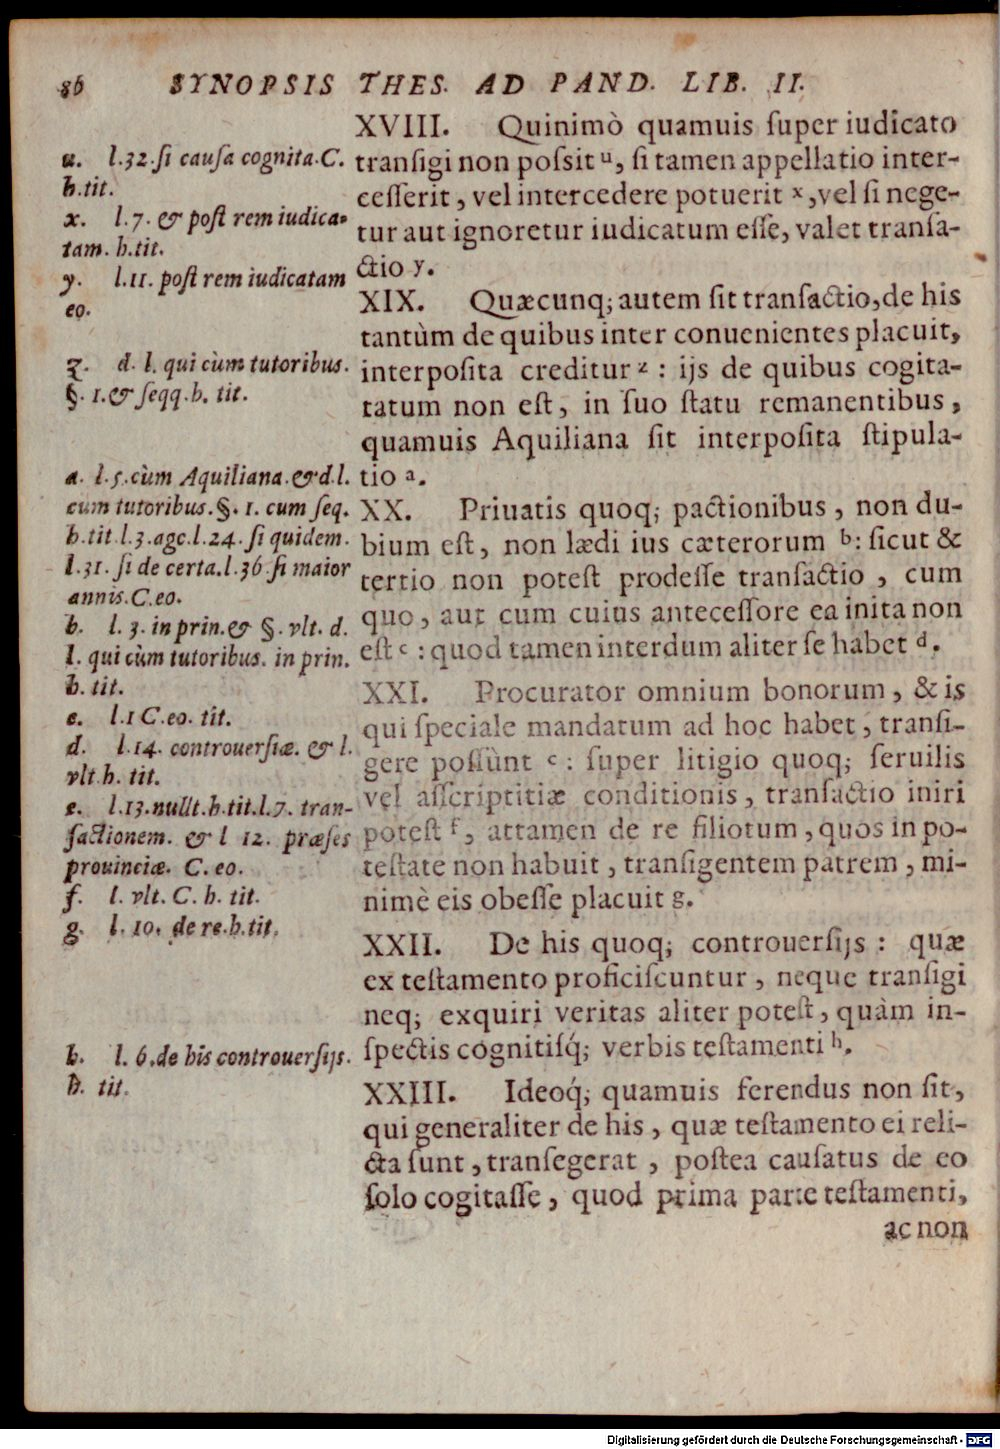 86 SYNOPSIS THES. AD PAND. LIB. II.
XVIII. Quinimò quamuis ſuper iudicato
tranſigi non poſsit ᵘ, ſi tamen appellatio inter-
ceſſerit, vel intercedere potuerit ˣ, vel ſi nege-
tur aut ignoretur iudicatum eſſe, valet tranſa-
ctio y.
XIX. Quæcunq; autem ſit tranſactio, de his
tantùm de quibus inter conuenientes placuit,
interpoſita creditur ᶻ : ijs de quibus cogita-
tatum non eſt, in ſuo ſtatu remanentibus,
quamuis Aquiliana ſit interpoſita ſtipula-
tio ᵃ.
XX. Priuatis quoq; pactionibus, non du-
bium eſt, non lædi ius cæterorum ᵇ: ſicut &
tertio non poteſt prodeſſe tranſactio, cum
quo, aut cum cuius anteceſſore ea inita non
eſt ᶜ : quod tamen interdum aliter ſe habet ᵈ.
XXI. Procurator omnium bonorum, & is
qui ſpeciale mandatum ad hoc habet, tranſi-
gere poſſunt ᵉ : ſuper litigio quoq; ſeruilis
vel aſſcriptitiæ conditionis, tranſactio iniri
poteſt ᶠ, attamen de re filiotum, quos in po-
teſtate non habuit, tranſigentem patrem, mi-
nimè eis obeſſe placuit g.
XXII. De his quoq; controuerſijs : quæ
ex teſtamento proficiſcuntur, neque tranſigi
neq; exquiri veritas aliter poteſt, quàm in-
ſpectis cognitiſq́; verbis teſtamenti ʰ.
XXIII. Ideoq́; quamuis ferendus non ſit,
qui generaliter de his, quæ teſtamento ei reli-
cta ſunt, tranſegerat, poſtea cauſatus de eo
ſolo cogitaſſe, quod prima parte teſtamenti,
ac non
u. l.32.ſi cauſa cognita.C.
h.tit.
x. l.7. & poſt rem iudica-
tam. h.tit.
y. l.11. poſt rem iudicatam
eo.
z. d. l. qui cùm tutoribus.
§. 1.& ſeqq.h. tit.
a. l.5.cùm Aquiliana.& d.l.
cum tutoribus.§. 1. cum ſeq.
h.tit.l.3.agc.l.24. ſi quidem.
l.31. ſi de certa.l.36.ſi maior
annis.C.eo.
b. l. 3. in prin.& §. vlt. d.
l. qui cùm tutoribus. in prin.
h. tit.
c. l.1 C.eo. tit.
d. l.14. controuerſiæ. & l.
vlt h. tit.
e. l.13.nullt.h.tit.l.7. tran-
ſactionem. & l 12. præſes
prouinciæ. C. eo.
f. l. vlt. C. h. tit.
g. l. 10. de re.h.tit.
h. l. 6.de his controuerſijs.
h. tit.
Digitalisierung gefördert durch die Deutsche Forschungsgemeinschaft - DFG